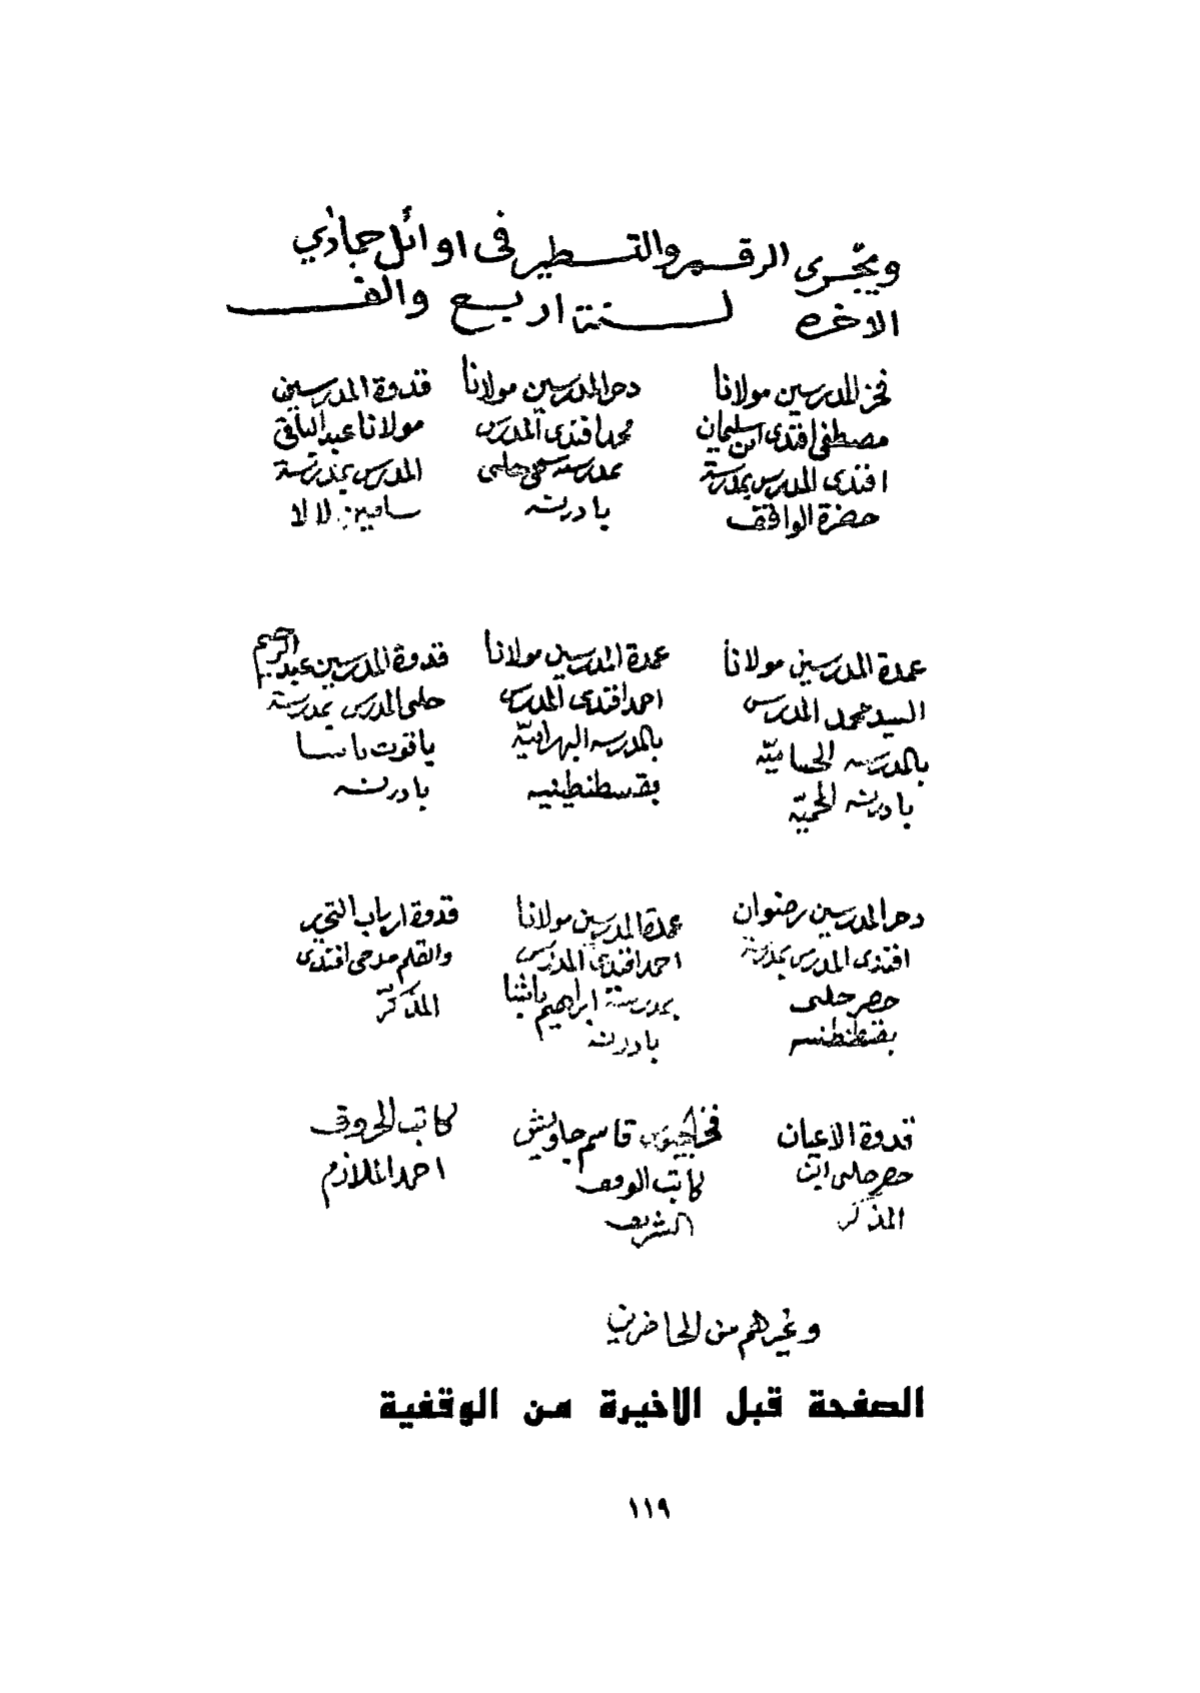 ويجرى الرقيم والتسطير فى اوائل جمادي
الاخره لسنة اربع والف
فخر المدرسين مولانا
مصطفى افندى ابن سليمان
افندى المدرس بمدرسة
حضرة الواقف
المدرسين مولانا
محمد افندى المدرس
بمدرسة چلبى
بادرنه
قدوة المدرسين
مولانا عبد الباقى
المدرس بمدرسة
لالا
عمدة المدرسين مولانا
السيد محمد المدرس
بالمدرسه الحساميّة
بادرنه المحميّه
عمدة المدرسين مولانا
احمد افندى المدرس
بالمدرسه البهراميّة
بقسطنطينيه
قدوة المدرسين عبد الكريم
چلبى المدرس بمدرسة
ياقوت پاشا
بادرنه
المدرسين رضوان
افندى المدرس بمدرسة
چلبى
بقسطنطنيه
عمدة المدرسين مولانا
احمد افندى المدرس
بمدرسة ابراهيم پاشا
بادرنه
قدوة ارباب التحرير
والقلم مدحى افندى
المذكّر
قدوة الاعيان
چلبى ابن
المذكر
قاسم جاويش
كاتب الوقف
الشريف
كاتب الحروف
احمد الملازم
وغيرهم من الحاضرين
الصفحة قبل الاخيرة من الوقفية
١١٩